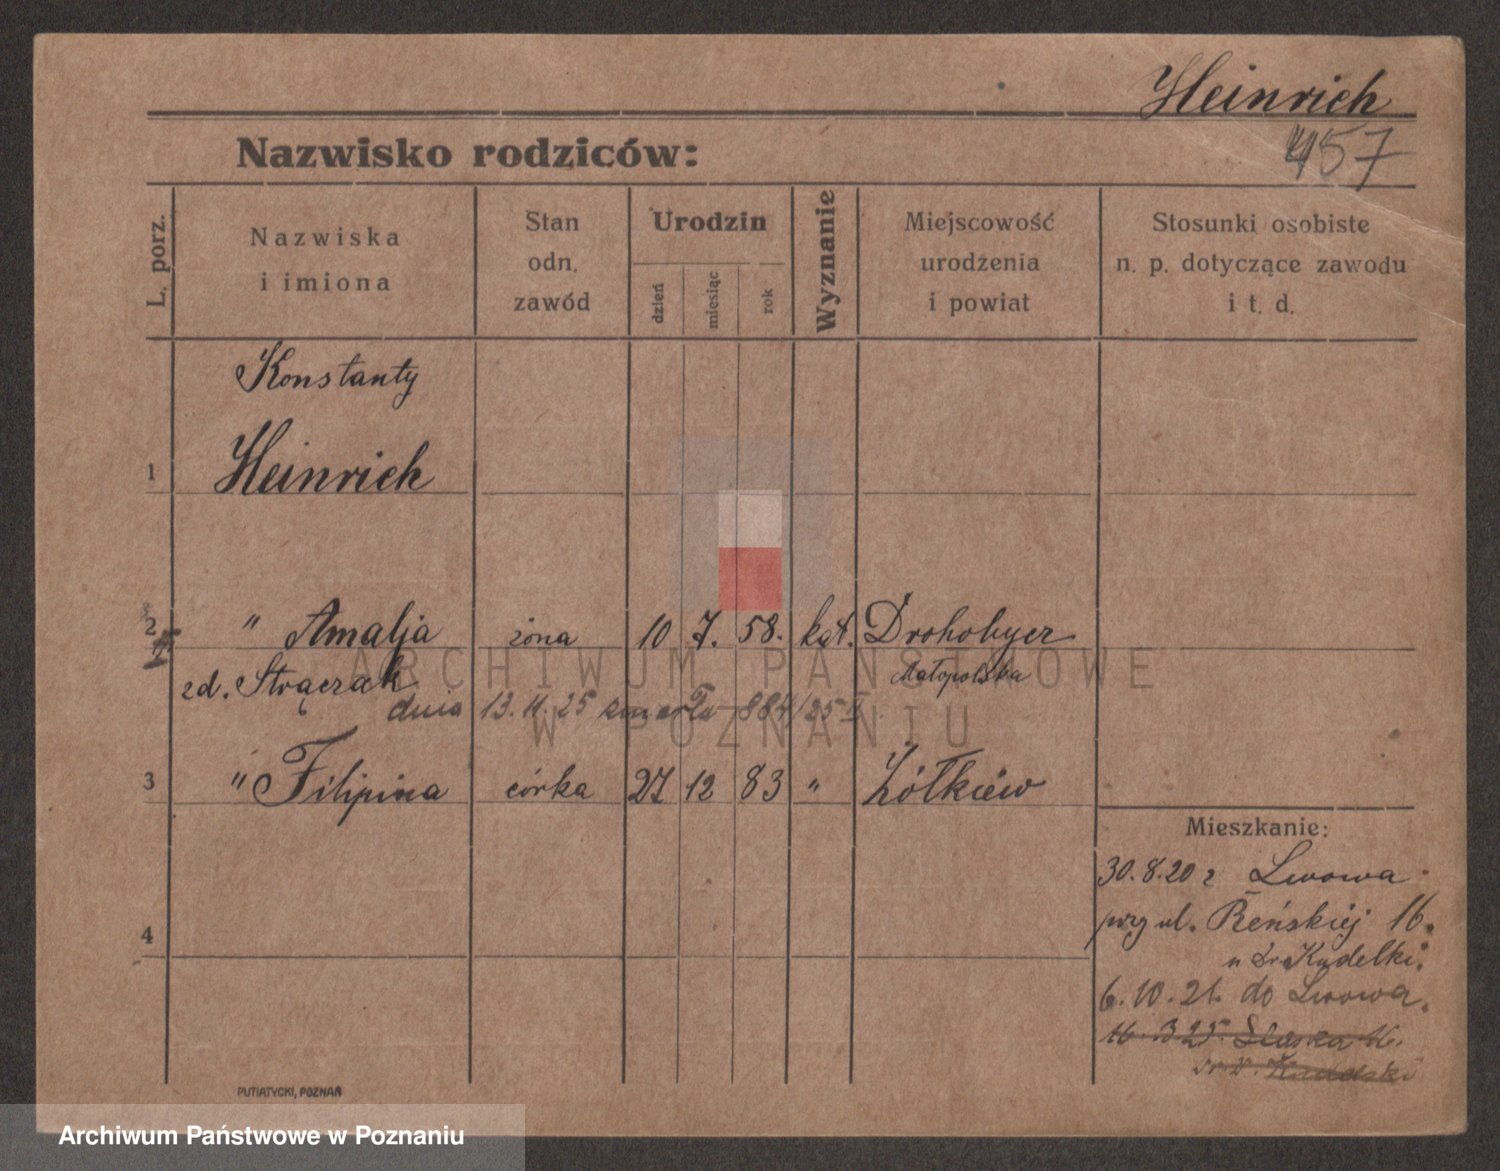 Heinrich
457
Nazwisko rodziców:
L. porz.
Nazwiska
i imiona
Stan
odn.
zawód
Urodzin
dzień
miesiąc
rok
Wyznanie
Miejscowość
urodzenia
i powiat
Stosunki osobiste
n. p. dotyczące zawodu
i t. d.
Konstanty
1 Heinrich
2 " Amalja żona 10 7. 58. kat. Drohobycz
zd. Strączak Małopolska
dnia 13.11.25 zmarła 884/25
3 " Filipina córka 27 12 83 " Żółkiew
4
Mieszkanie:
30.8.20 z Lwowa
przy ul. Reńskiej 16.
u Dr Kudelki.
6.10.21. do Lwowa.
16. 3 25. Śląska 16.
PUTIATYCKI, POZNAŃ
ARCHIWUM PAŃSTWOWE
W POZNANIU
Archiwum Państwowe w Poznaniu